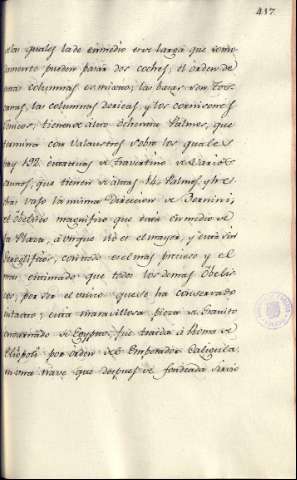 417.
las quales la de en medio es e larga que como
damente pueden pasar dos coches; el orden de
estas columnas es mixto; las bases son Tos-
canas, las columnas doricas, y los cornisones
Jonicos; tienen de alto ochenta Palmos, que
termina con Valaustres sobre los quales
hay 192. estatuas de travertino de varios
santos, que tienen de altas 14. Palmos, y hechas
bajo la misma Direccion de Bernini,
el obelisco magnifico que está en medio de
la Plaza, aunque no es el mayor, y está sin
Geroglificos, con todo es el mas precioso y el
mas estimado que todos los demas Obelis-
cos, por ser el unico que se ha conservado
intacto; esta maravillosa pieza de Granito
encarnado de Egypto, fue traida à Roma de
Eliopoli por orden del Emperador Caligula,
en una nave que despues de fondeada sirvio